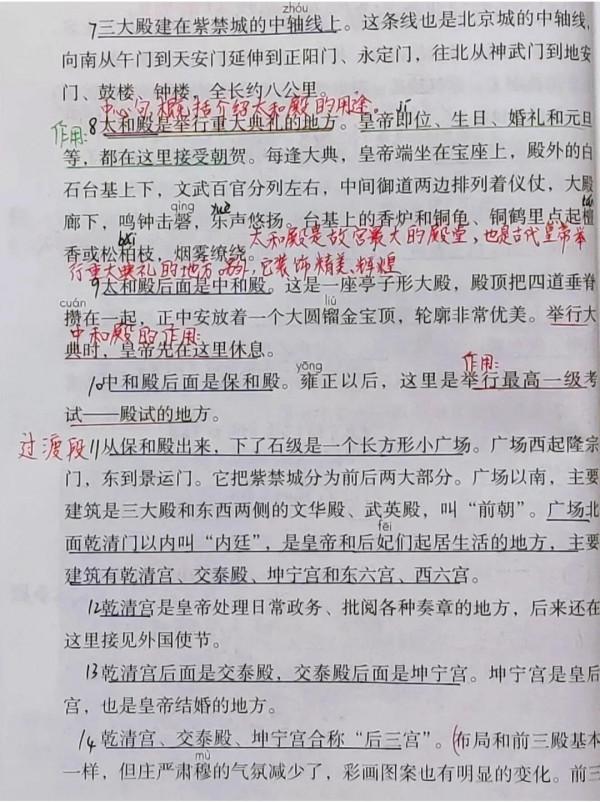 zhóu
7三大殿建在紫禁城的中轴线上。这条线也是北京城的中轴线,
向南从午门到天安门延伸到正阳门、永定门，往北从神武门到地安
门、鼓楼、钟楼，全长约八公里。
中心句,概括介绍太和殿的用途。
作用: 8太和殿是举行重大典礼的地方。皇帝即位、生日、婚礼和元旦
等，都在这里接受朝贺。每逢大典，皇帝端坐在宝座上，殿外的白
石台基上下，文武百官分列左右，中间御道两边排列着仪仗，大殿
qìng yuè
廊下，鸣钟击磬，乐声悠扬。台基上的香炉和铜龟、铜鹤里点起檀
bǎi
香或松柏枝，烟雾缭绕。
太和殿是故宫最大的殿堂,也是古代皇帝举
行重大典礼的地方。另外,它装饰精美、辉煌
9太和殿后面是中和殿。这是一座亭子形大殿，殿顶把四道垂脊
cuán liú
攒在一起，正中安放着一个大圆镏金宝顶，轮廓非常优美。举行大
中和殿的作用:
典时，皇帝先在这里休息。
yōng 作用:
10中和殿后面是保和殿。雍正以后，这里是举行最高一级考
试——殿试的地方。
过渡段 11从保和殿出来，下了石级是一个长方形小广场。广场西起隆宗
门，东到景运门。它把紫禁城分为前后两大部分。广场以南，主要
建筑是三大殿和东西两侧的文华殿、武英殿，叫“前朝”。广场北
fēi
面乾清门以内叫“内廷”，是皇帝和后妃们起居生活的地方，主要
建筑有乾清宫、交泰殿、坤宁宫和东六宫、西六宫。
12乾清宫是皇帝处理日常政务、批阅各种奏章的地方，后来还在
这里接见外国使节。
13乾清宫后面是交泰殿，交泰殿后面是坤宁宫。坤宁宫是皇后
宫，也是皇帝结婚的地方。
14乾清宫、交泰殿、坤宁宫合称“后三宫”。(布局和前三殿基本
mù
一样，但庄严肃穆的气氛减少了，彩画图案也有明显的变化。前三